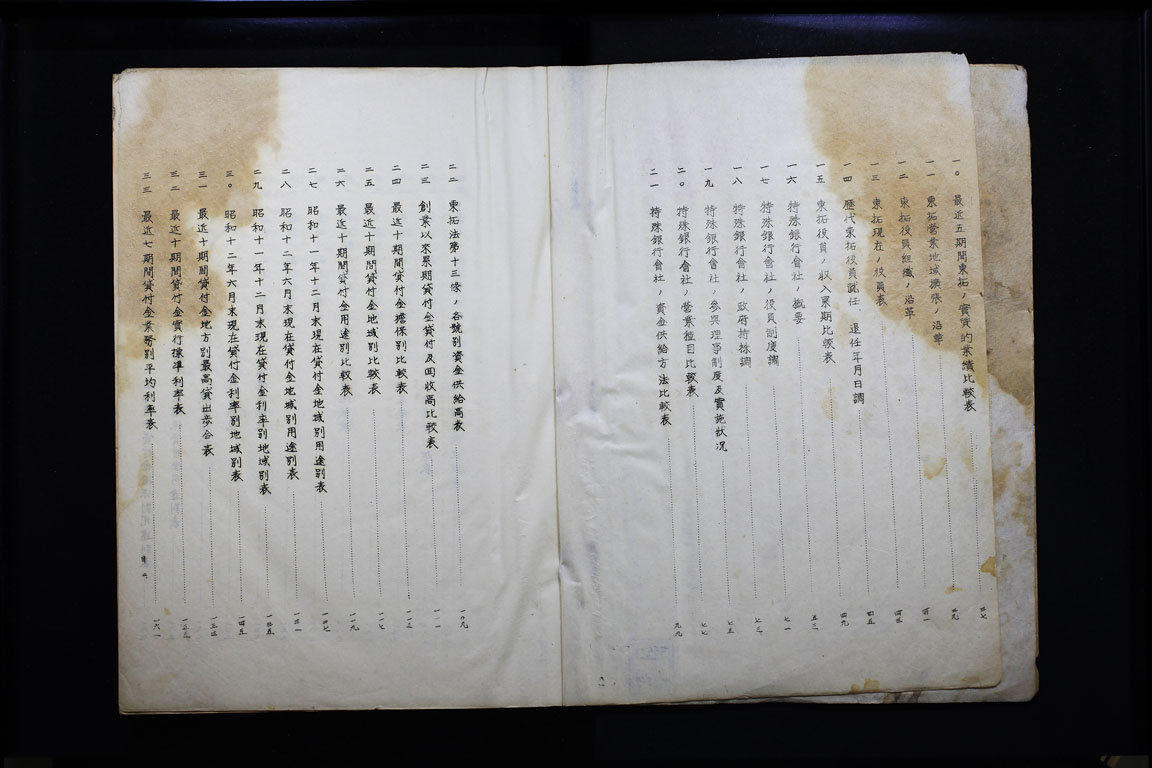 一〇 最近五期間東拓ノ實質的業績比較表
一一 東拓營業地域擴張ノ沿革
一二 東拓役員組織ノ沿革
一三 東拓現在ノ役員表
一四 歷代東拓役員就任、退任年月日調
一五 東拓役員ノ收入累期比較表
一六 特殊銀行會社ノ概要 七一
一七 特殊銀行會社ノ役員制度調
一八 特殊銀行會社ノ政府持株調 七五
一九 特殊銀行會社ノ參與理事制度及實施狀況 七七
二〇 特殊銀行會社ノ營業種目比較表
二一 特殊銀行會社ノ資金供給方法比較表 九九
二二 東拓法第十三條ノ各號別資金供給高表 一〇九
二三 創業以來累期貸付金貸付及回收高比較表 一一一
二四 最近十期間貸付金擔保別比較表
二五 最近十期間貸付金地域別比較表 一一七
二六 最近十期間貸付金用途別比較表 一一九
二七 昭和十一年十二月末現在貸付金地域別用途別表
二八 昭和十二年六月末現在貸付金地域別用途別表
二九 昭和十一年十二月末現在貸付金利率別地域別表
三〇 昭和十二年六月末現在貸付金利率別地域別表
三一 最近十期間貸付金地方別最高貸出步合表
三二 最近十期間貸付金實行標準利率表
三三 最近七期間貸付金業務別平均利率表 一六一